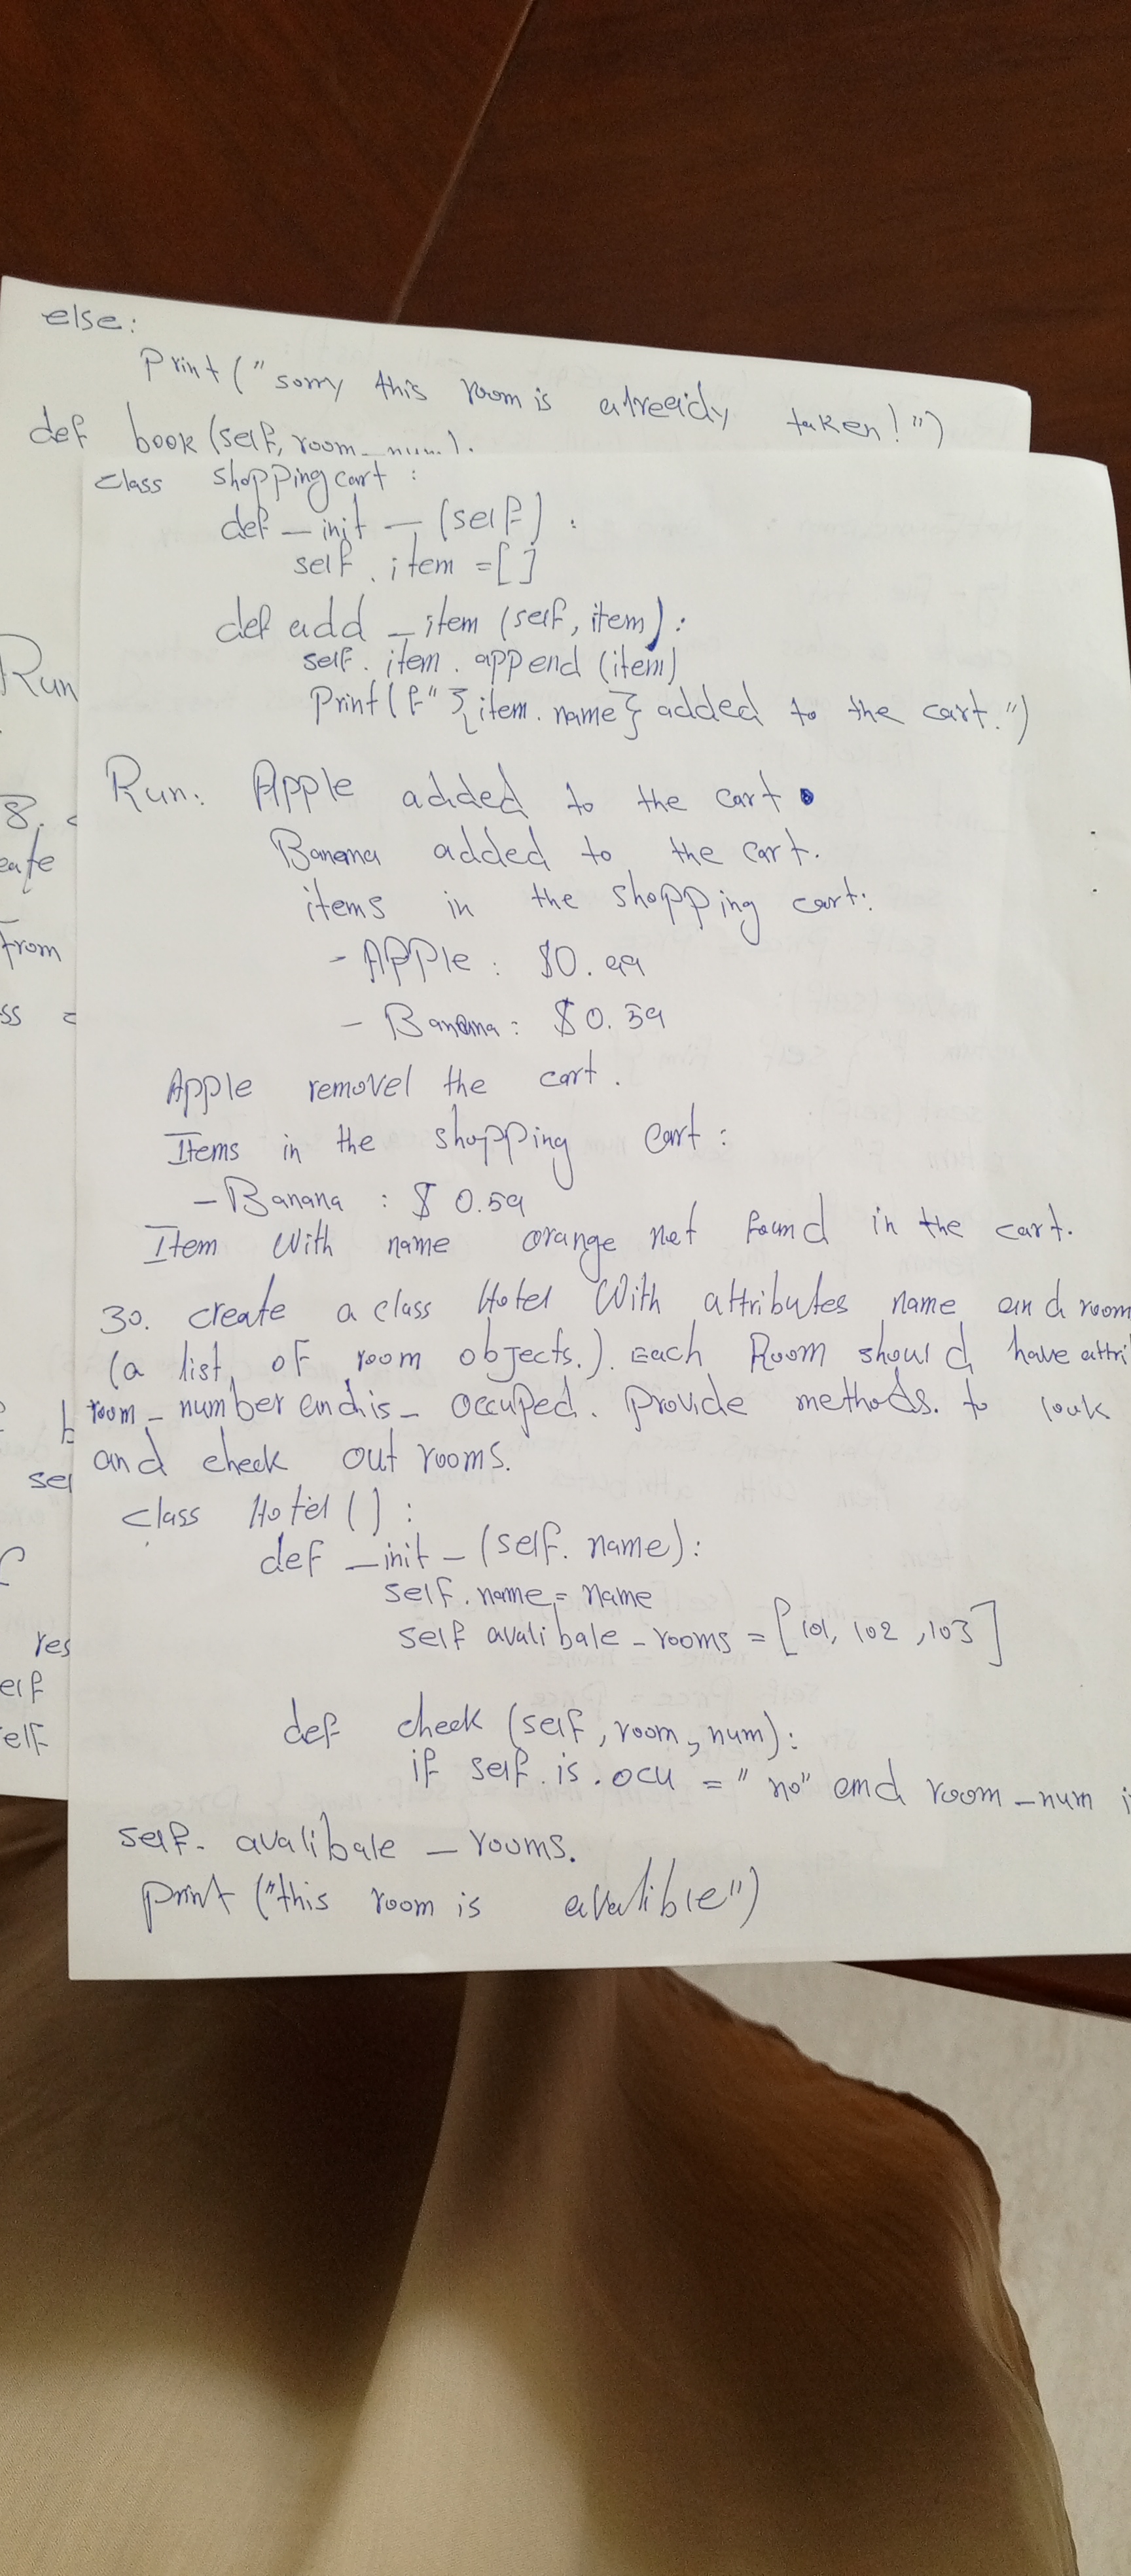 else:
print("sorry this room is already taken!")
def book(self, room_num):
class shoppingcart:
def _init_(self):
self.item =[]
def add_item (self, item):
self.item.append (item)
Print(f"{item.name} added to the cart.")
Run: Apple added to the cart.
Banana added to the cart.
items in the shopping cart:
- Apple: $0.99
- Banana: $0.59
Apple removel the cart.
Items in the shopping cart:
- Banana: $ 0.59
Item With name orange not found in the cart.
30. create a class Hotel With attributes name and room
(a list of room objects.). Each Room should have attri
room_number and is_ occuped. Provide methods. to
and check out rooms.
class Hotel():
def _init_(self. name):
self.name = name
self avalibale_rooms = [101, 102, 103]
def check (self, room, num):
if self.is.ocu = "no" and room_num i
self. avalibale _ rooms.
print ("this room is avalible")
Run
8.
eate
from
ss
b
sel
res
elf
elf